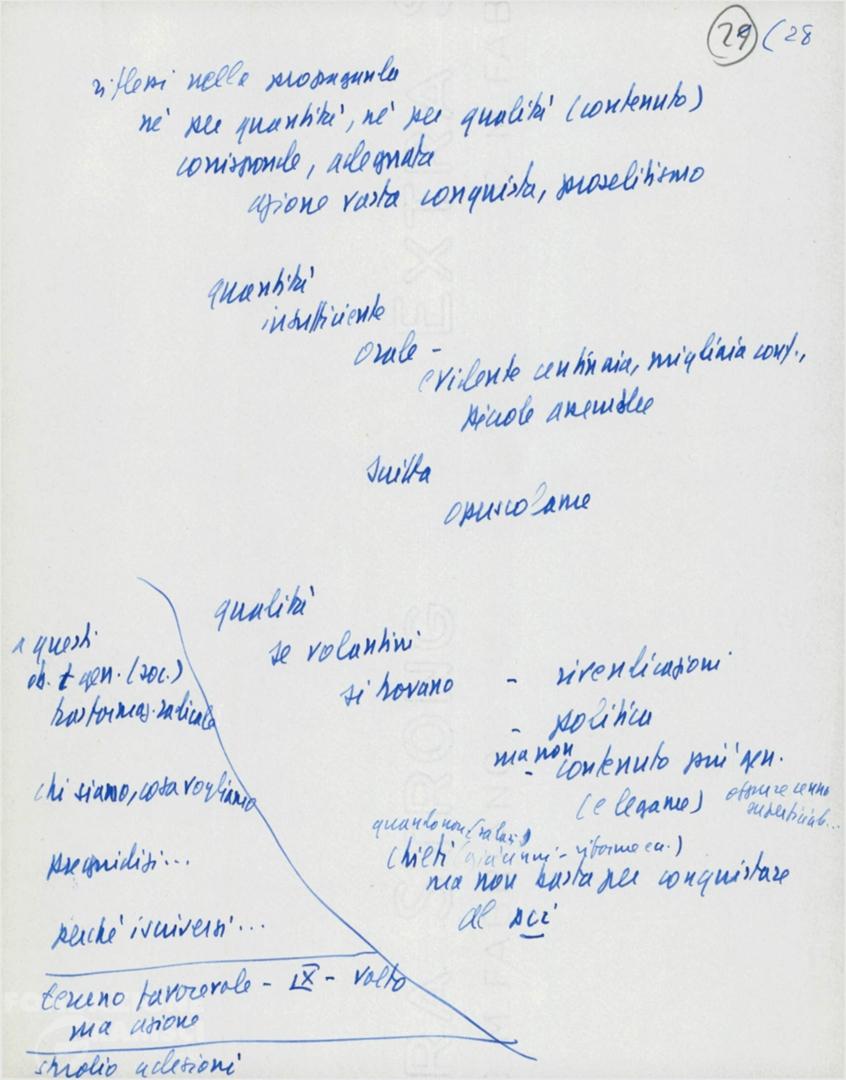 29 (28
riflessi nella propaganda
né per quantità, né per qualità (contenuto)
corrisponde, adeguata
azione vasta conquista, proselitismo
quantità
insufficiente
orale -
evidente centinaia, migliaia conf.,
piccole assemblee
scritta
opuscolame
qualità
se volantini
si trovano - rivendicazioni
- politica
ma non
- contenuto più gen.
(e legame) oppure cenno
superficiale...
quando non (salari)
Chieti - riforme ecc.)
ma non basta per conquistare
al pci
a questi
ob. gen. (soc.)
trasformaz. radicale
chi siamo, cosa vogliamo
pregiudizi...
perché iscriversi...
terreno favorevole - IX - volto
ma azione
studio adesioni